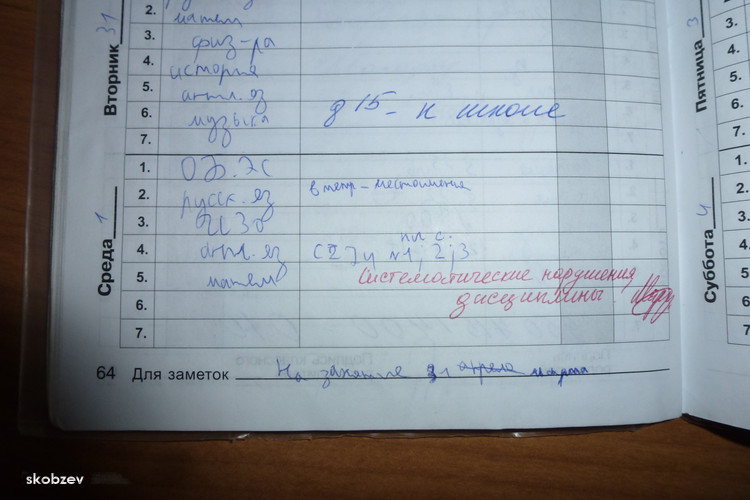 Вторник 31
2. матем
3. физ-ра
4. история
5. англ. яз
6. музыка
д 15 - к школе
7.
Среда 1
1.
2. русск. яз
в тетр - местоимения
3. ИЗО
4. англ. яз
с 27 у №1, 2, 3
5. матем
Систематические нарушения
дисциплины.
6.
7.
64 Для заметок На занятие апреля марта
Пятница 3
2.
3.
4.
5.
6.
7.
Суббота 4
1.
2.
3.
4.
5.
6.
7
skobzev